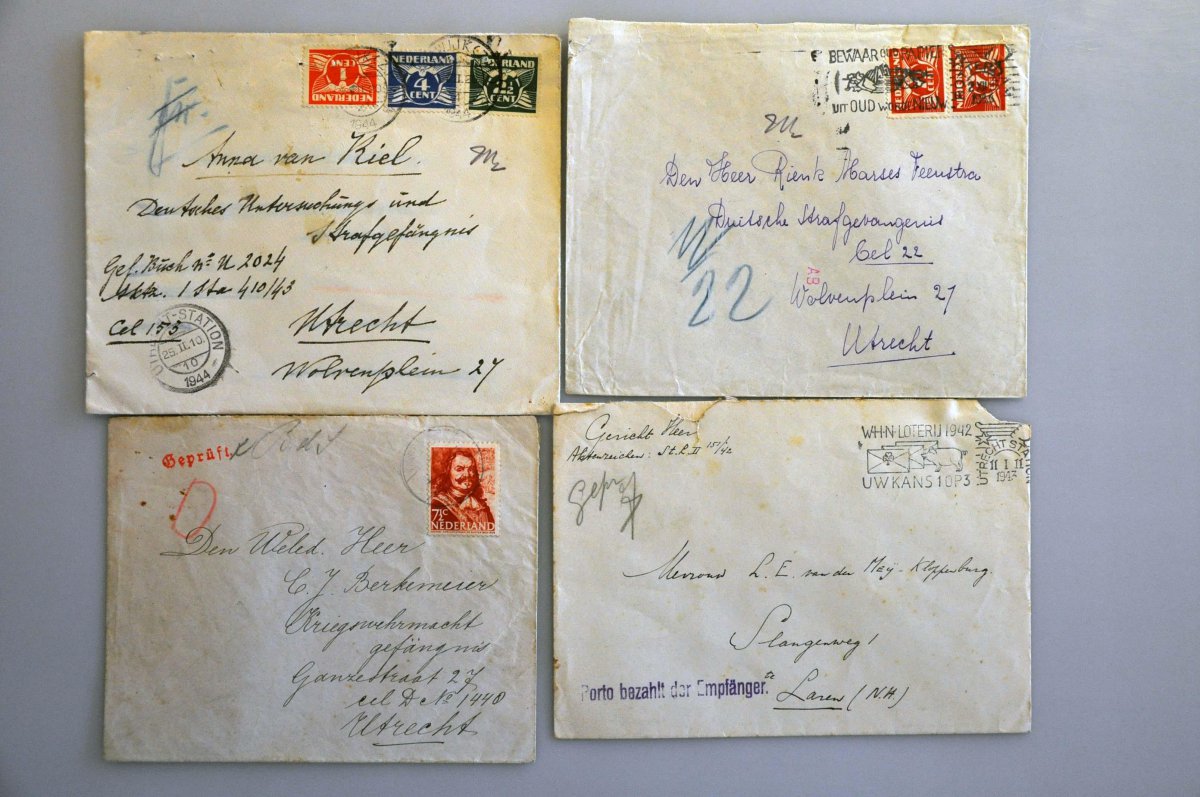 1
CENT
NEDERLAND
NEDERLAND
4
CENT
NEDERLAND
2½
CENT
1944
Anna van Kiel.
Deutsches Untersuchungs und
Strafgefängnis
Gef. Buch nº U 2024
Aktz. 1 Sta 410/43
Cel 155
Utrecht
Wolvenplein 27
UTRECHT-STATION
25.II.10
10
1944
BEWAAR OUD PAPIER
UIT OUD WORDT NIEUW
Den Heer Rienk Marses Feenstra
Duitsche Strafgevangenis
Cel 22
22
A9
Wolvenplein 27
Utrecht.
Geprüft
7½C
NEDERLAND
Den Weled. Heer
C. J. Berkemeier
Kriegswehrmacht
gefängnis
Ganzestraat 27
cel D No 1440
Utrecht
Gericht Heer
Aktenzeichen: St. L. II 151/42
WHN-LOTERIJ 1942
UW KANS 1 OP 3
UTRECHT STATION
11 I 11
1943
Mevrouw L. E. van der Meij-Kloppenburg.
Slangenweg 1
Laren (N.H.)
Porto bezahlt der Empfänger.